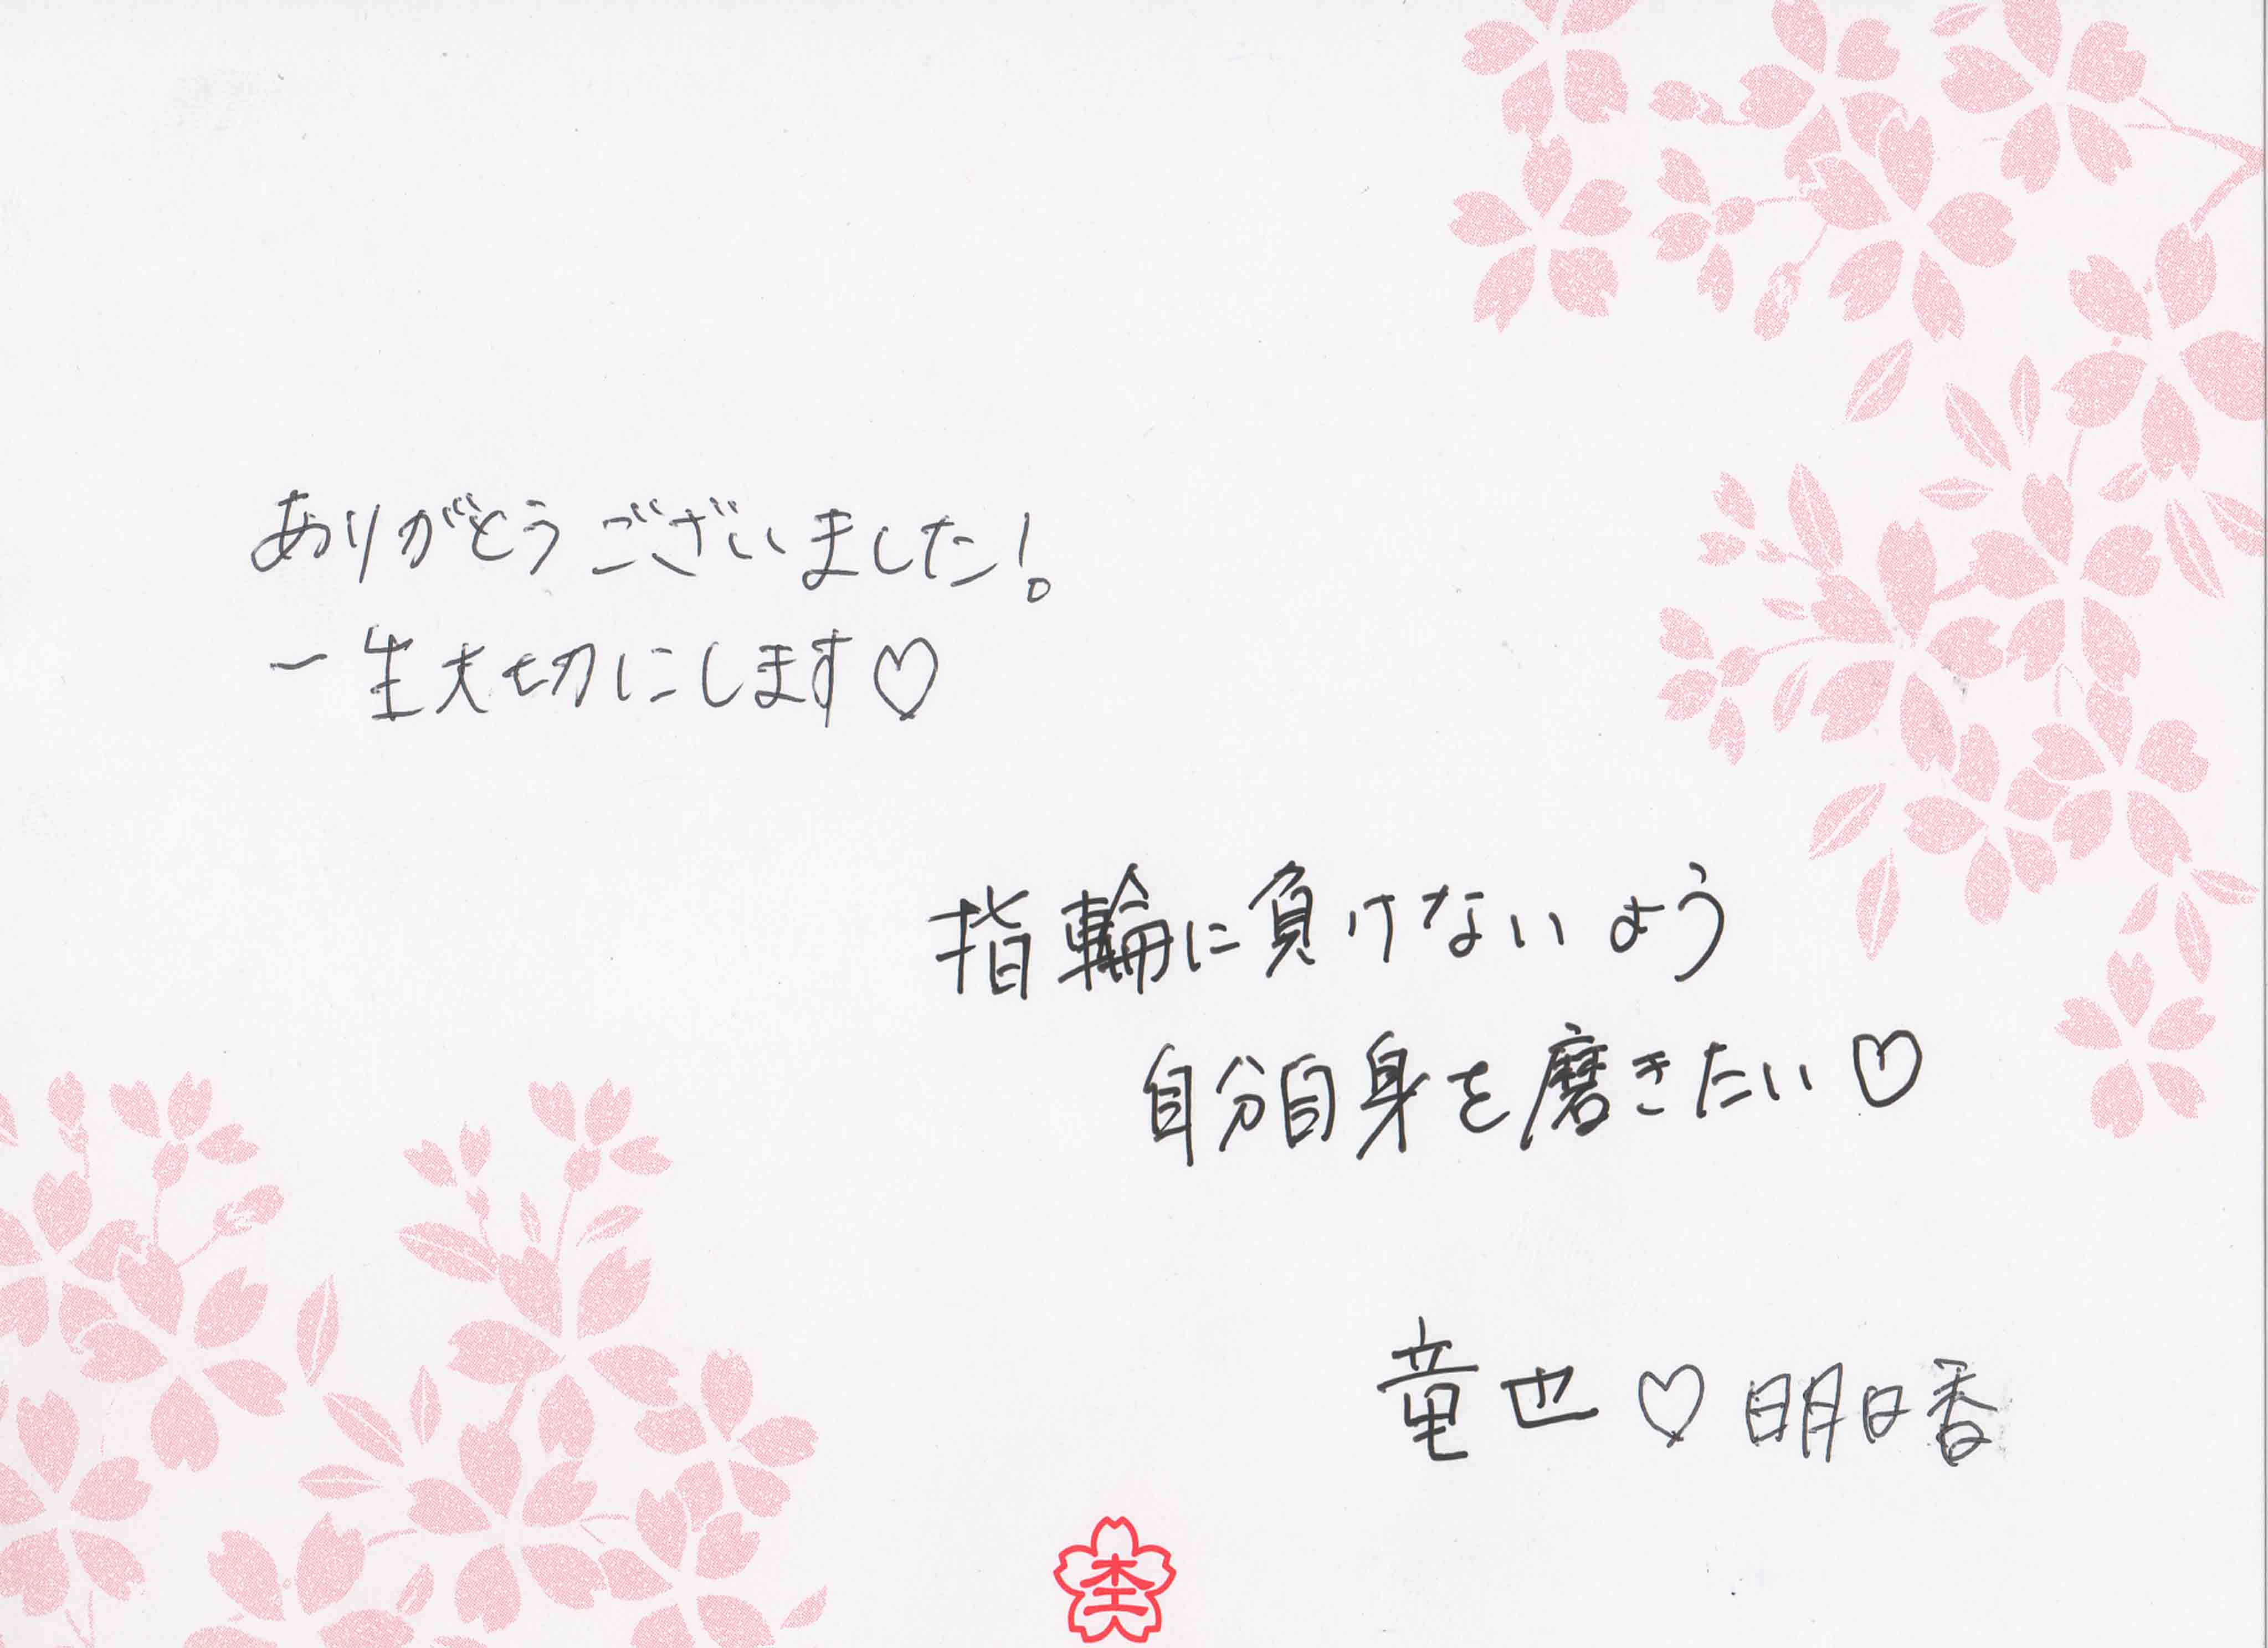 ありがとうございました!。
一生大切にします♡
指輪に負けないよう
自分自身を磨きたい♡
竜也♡明日香
杢